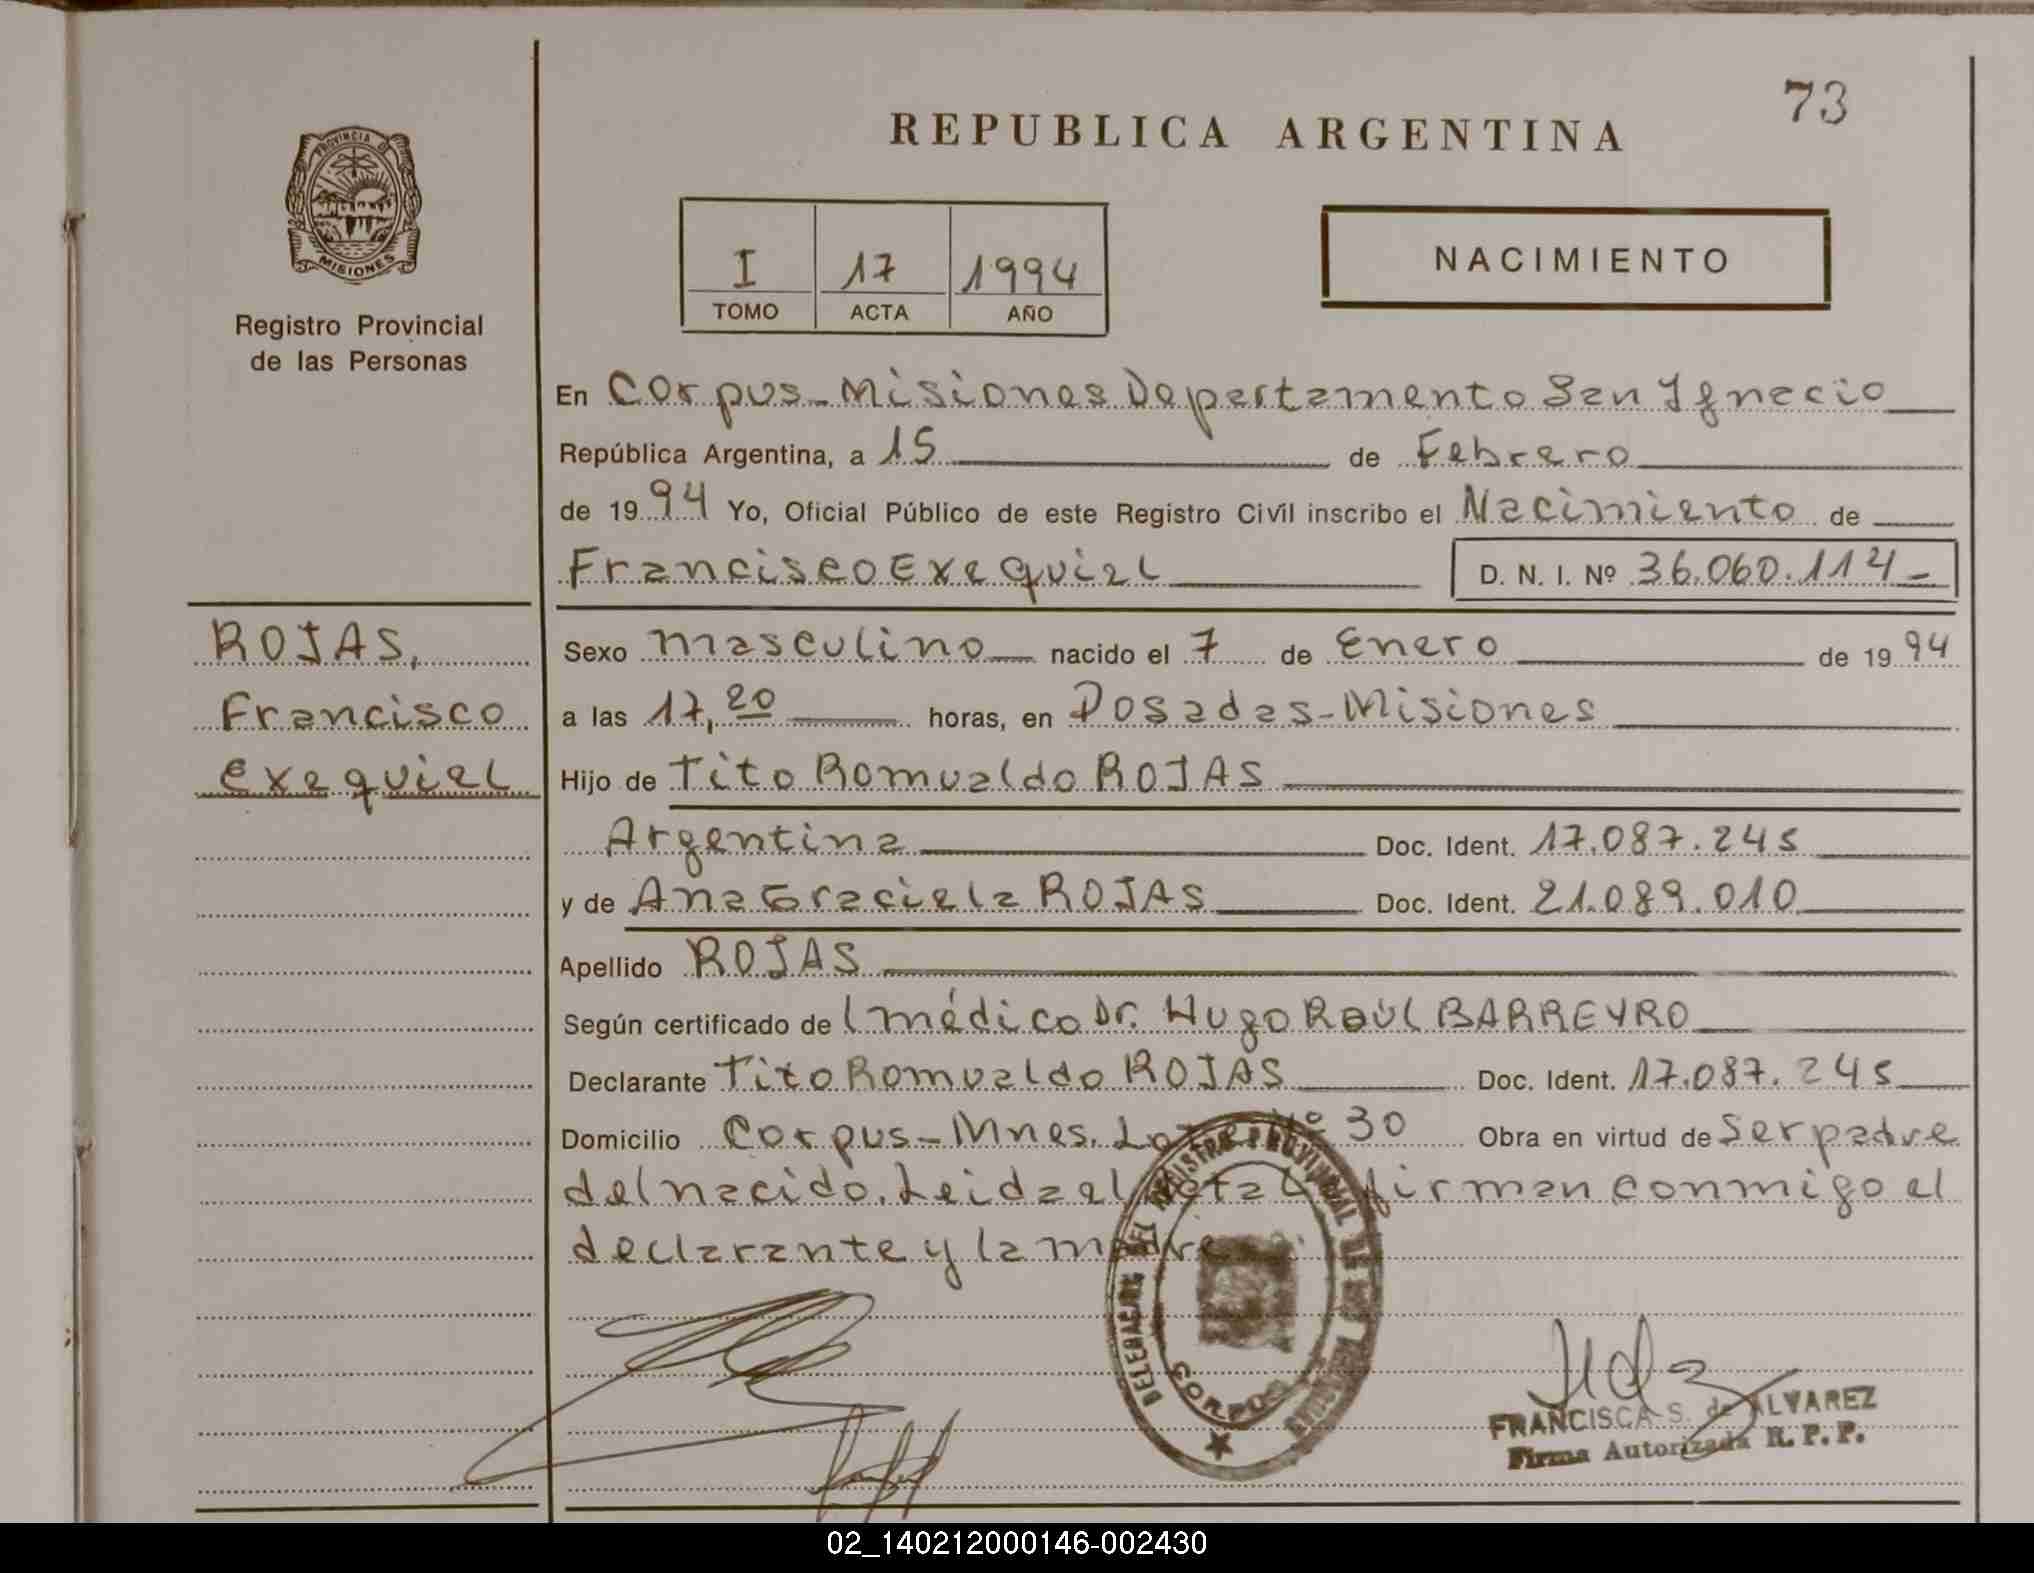 73
REPUBLICA ARGENTINA
PROVINCIA DE
MISIONES
Registro Provincial
de las Personas
I 17 1994
TOMO ACTA AÑO
NACIMIENTO
En Corpus-Misiones Departamento San Ignacio
República Argentina, a 15 de Febrero
de 1994 Yo, Oficial Público de este Registro Civil inscribo el Nacimiento de
Francisco Exequiel D. N. I. Nº 36.060.114-
ROJAS,
Francisco
Exequiel
Sexo masculino nacido el 7 de Enero de 1994
a las 17,20 horas, en Posadas-Misiones
Hijo de Tito Romualdo ROJAS
Argentina Doc. Ident. 17.087.245
y de Ana Graciela ROJAS Doc. Ident. 21.089.010
Apellido ROJAS
Según certificado del médico Dr. Hugo Raúl BARREYRO
Declarante Tito Romualdo ROJAS Doc. Ident. 17.087.245
Domicilio Corpus-Mnes. Lote Nº 30 Obra en virtud de ser padre
del nacido. Leida el Acta firman conmigo el
declarante y la madre
REGISTRO PROVINCIAL DE LAS
CORPUS
FRANCISCA S. de ALVAREZ
Firma Autorizada R. P. P.
02_140212000146-002430